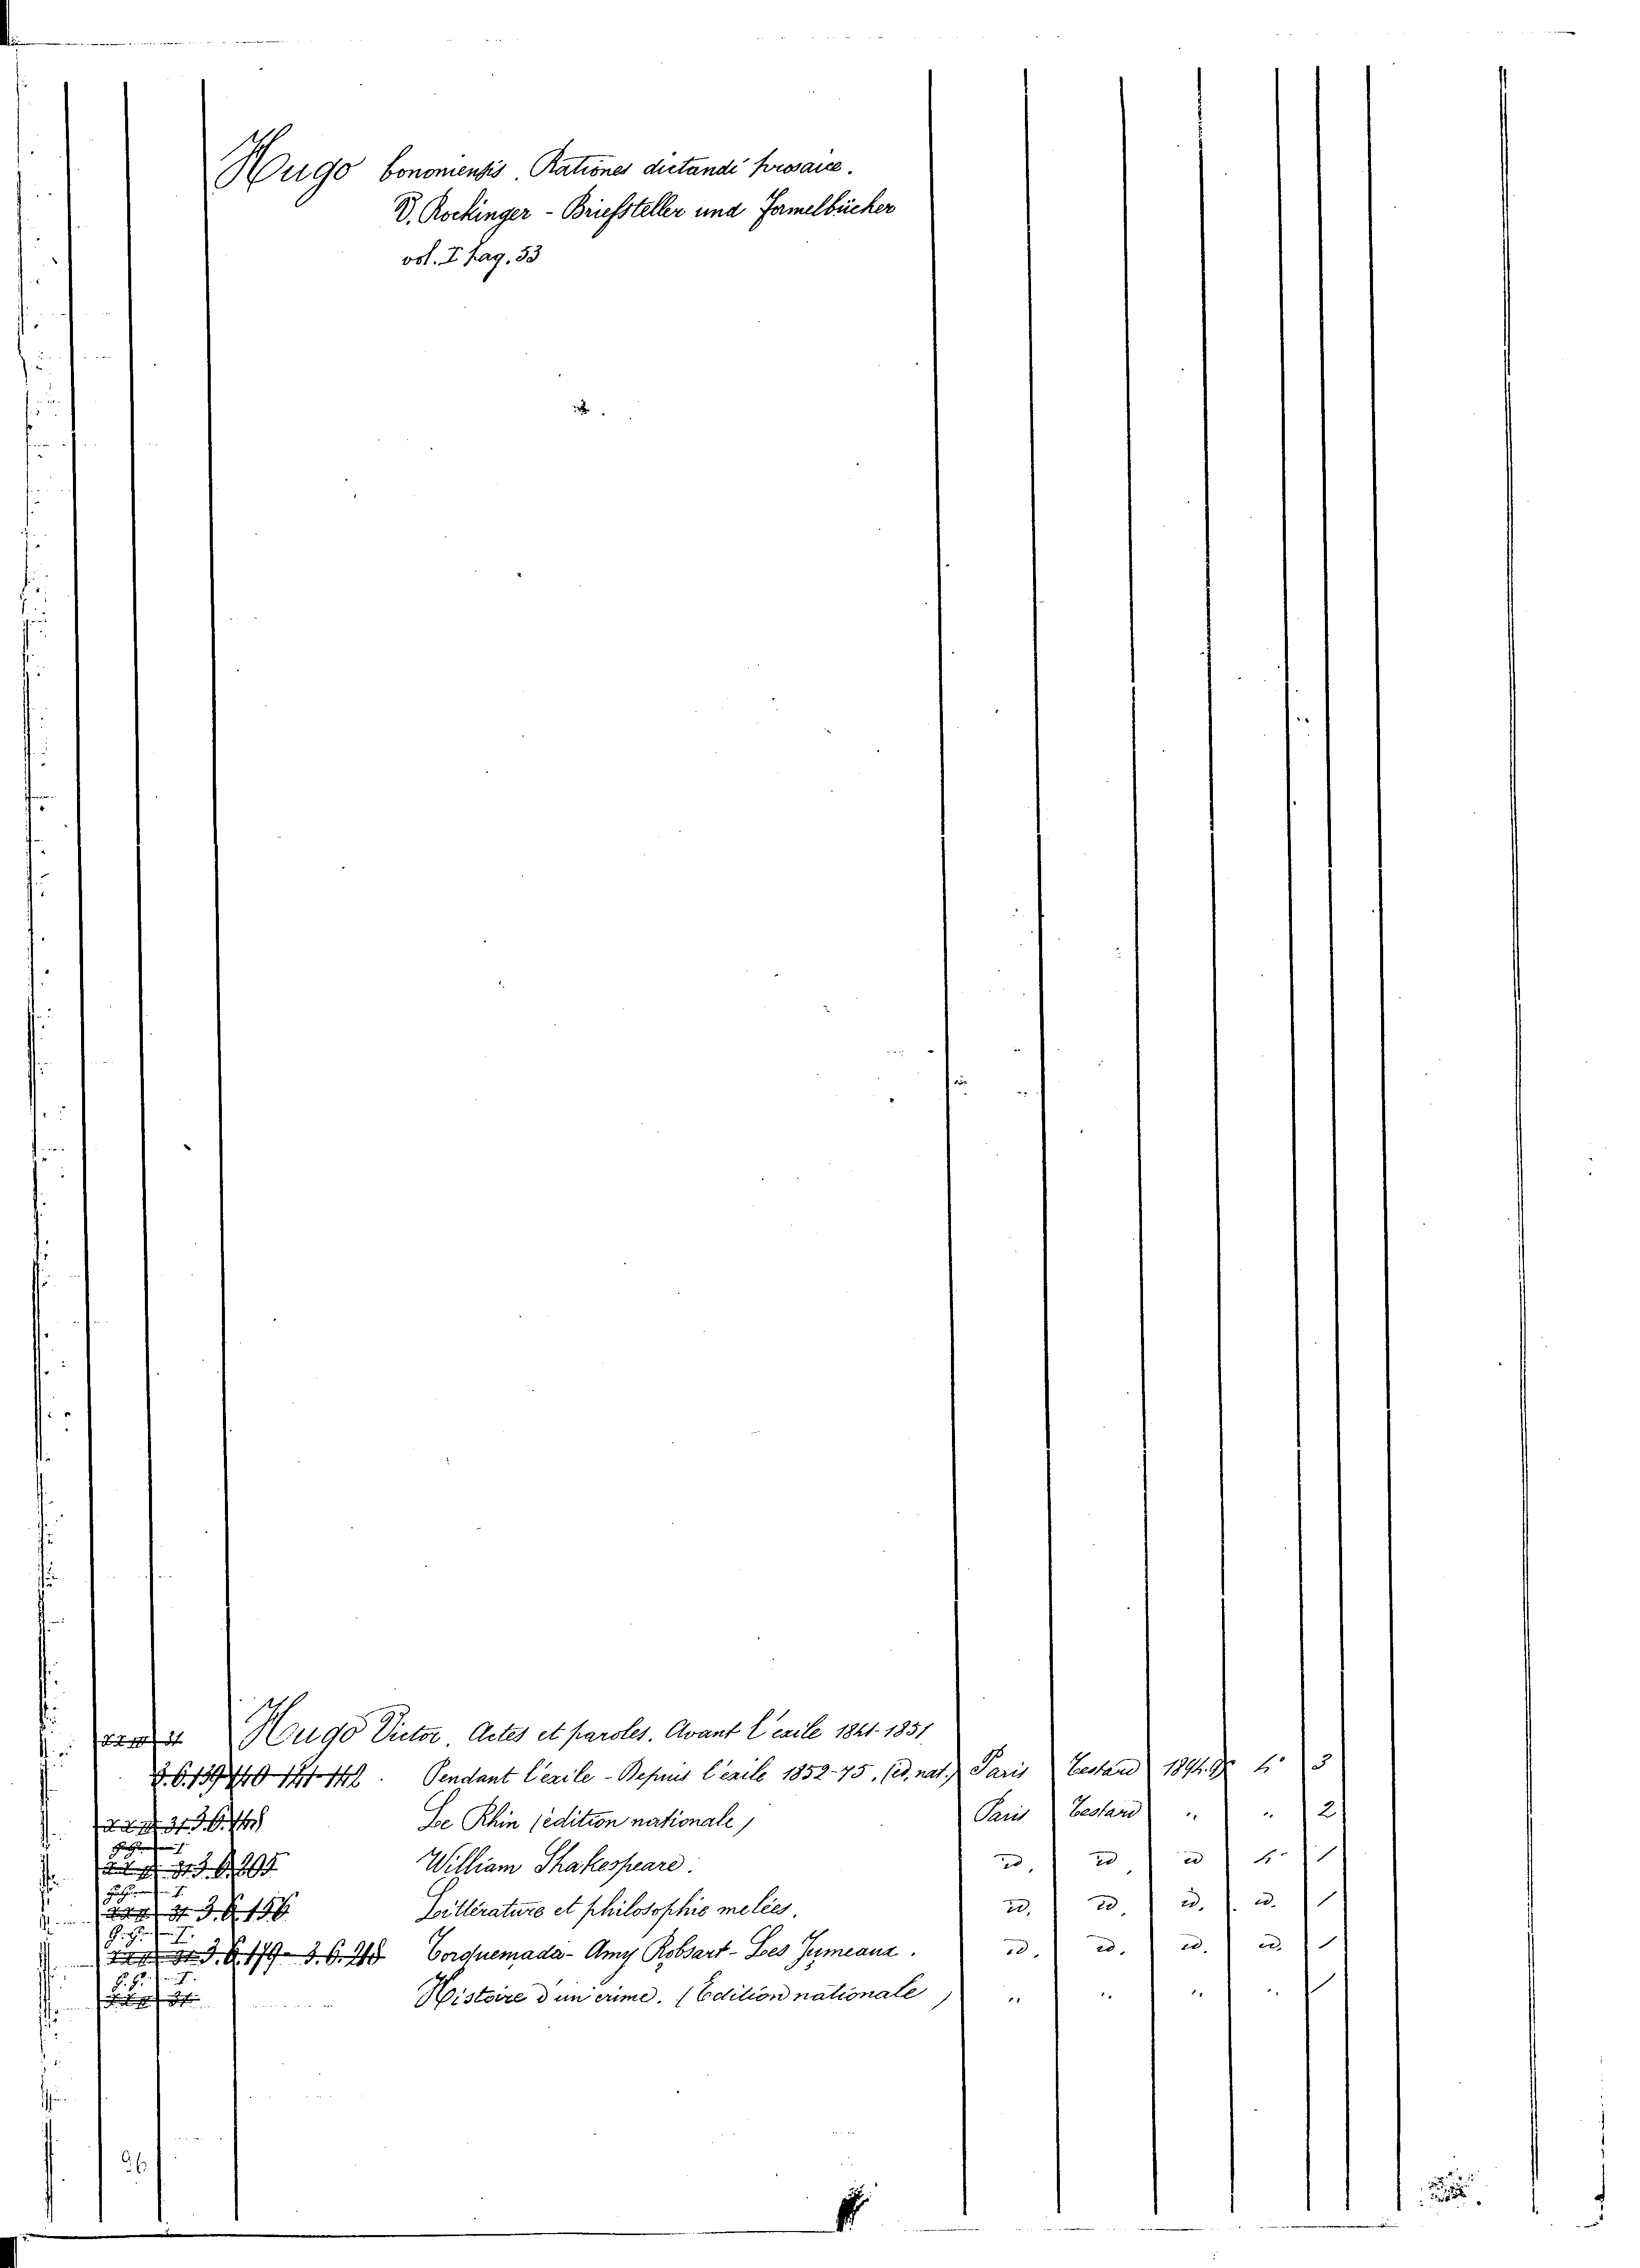 Hugo bononiensis. Rationes dictandi prosaice.
V. Rockinger - Briefsteller und Formelbücher
vol. I pag. 53
Hugo Victor. Actes et paroles. Avant l'exile 1841-1851
3.6.139 140-141-142. Pendant l'exile - Depuis l'exile 1852-75. (ed. nat.) Paris Testard 1894.95 4° 3
Le Rhin (édition nationale) Paris Testard " " 2
William Shakespeare. id. id id 4° 1
3.6.156 Littérature et philosophie melées. id. id. id. id. 1
3.6.179 - 3.6.218 Torquemada - Amy Robsart - Les Jumeaux. id. id. id. id. 1
Histoire d'un crime. (Edition nationale) " " " " 1
26